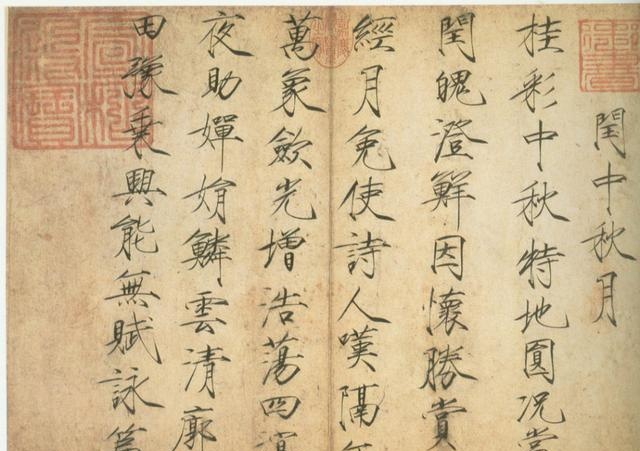 閏中秋月
桂彩中秋特地圓况當
閏魄澄鮮因懷勝賞
經月免使詩人嘆隔
萬象歛光增浩蕩四溟
夜助嬋娟鱗雲清廓
田豫乘興能無賦詠篇